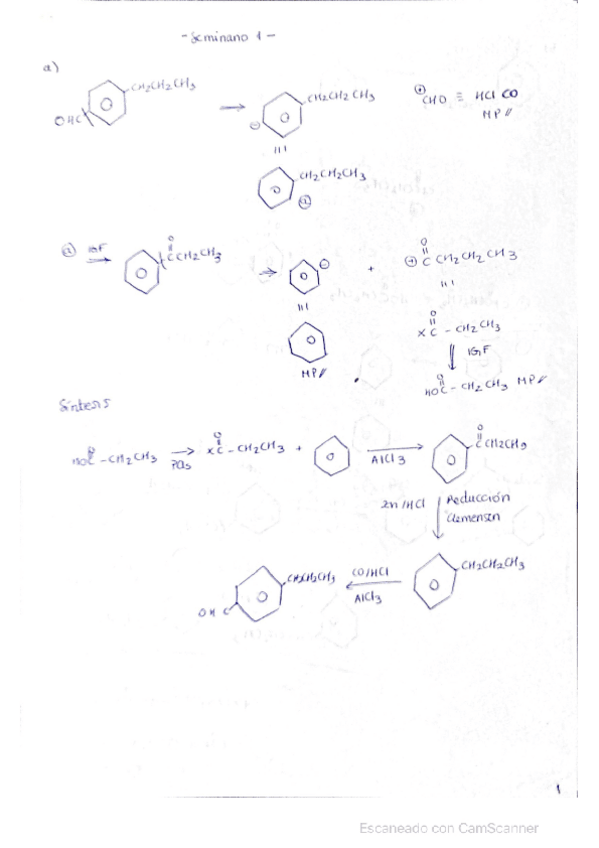 - Seminario 1 -
a)
CH2CH2CH3
OHC
→
CH2CH2CH3
⊖
⊕CHO ≡ HCl CO
MP//
≡
CH2CH2CH3
ⓐ
ⓐ IGF ⇒
O
CCH2CH3
⇒
⊖
+
O
⊕ C CH2CH2CH3
≡
≡
O
X C - CH2CH3
MP//
⇓ IGF
O
HOC - CH2CH3 MP//
Síntesis
O
HOC - CH2CH3
→
PCl5
O
XC - CH2CH3
+
→
AlCl3
O
CCH2CH3
Zn/HCl
Reducción
Clemensen
CH2CH2CH3
CO/HCl
AlCl3
CH2CH2CH3
OHC
1
Escaneado con CamScanner